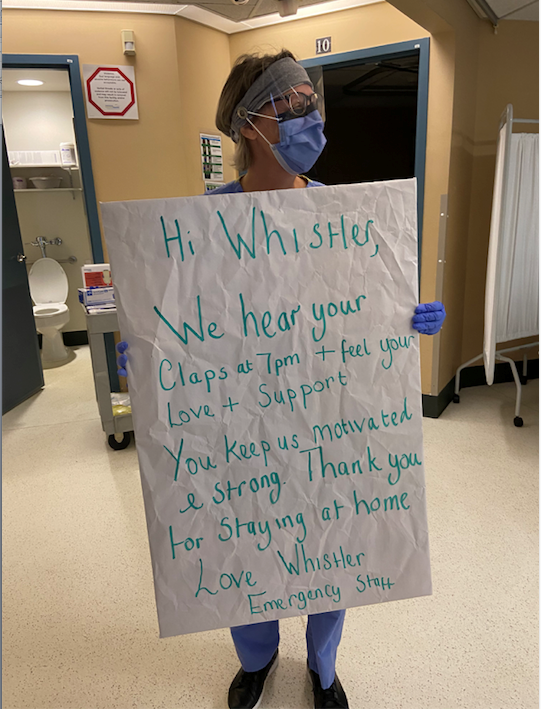 10
Hi Whistler,
We hear your
Claps at 7pm + feel your
Love + Support
You keep us motivated
& strong. Thank you
for staying at home
Love Whistler
Emergency Staff